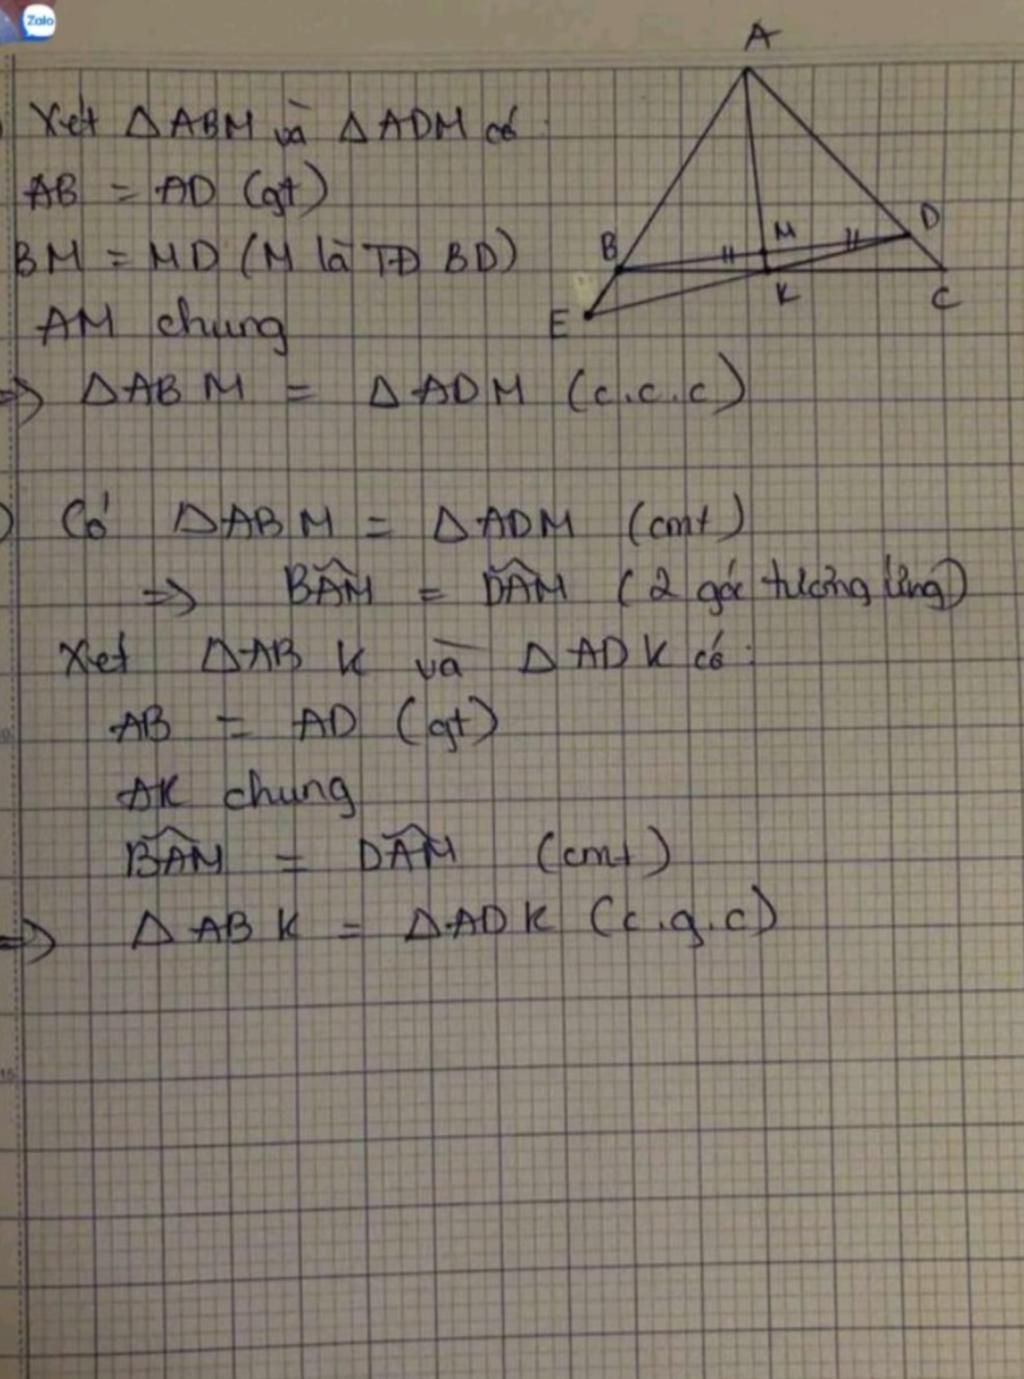 Zalo
A
Xét ΔABM và ΔADM có:
AB = AD (gt)
BM = MD (M là TĐ BD)
B M D
AM chung
E K C
=> ΔABM = ΔADM (c.c.c)
Có ΔABM = ΔADM (cmt)
=> BÂM = DÂM (2 góc tương ứng)
Xét ΔABK và ΔADK có:
AB = AD (gt)
AK chung
BÂM = DÂM (cmt)
=> ΔABK = ΔADK (c.g.c)